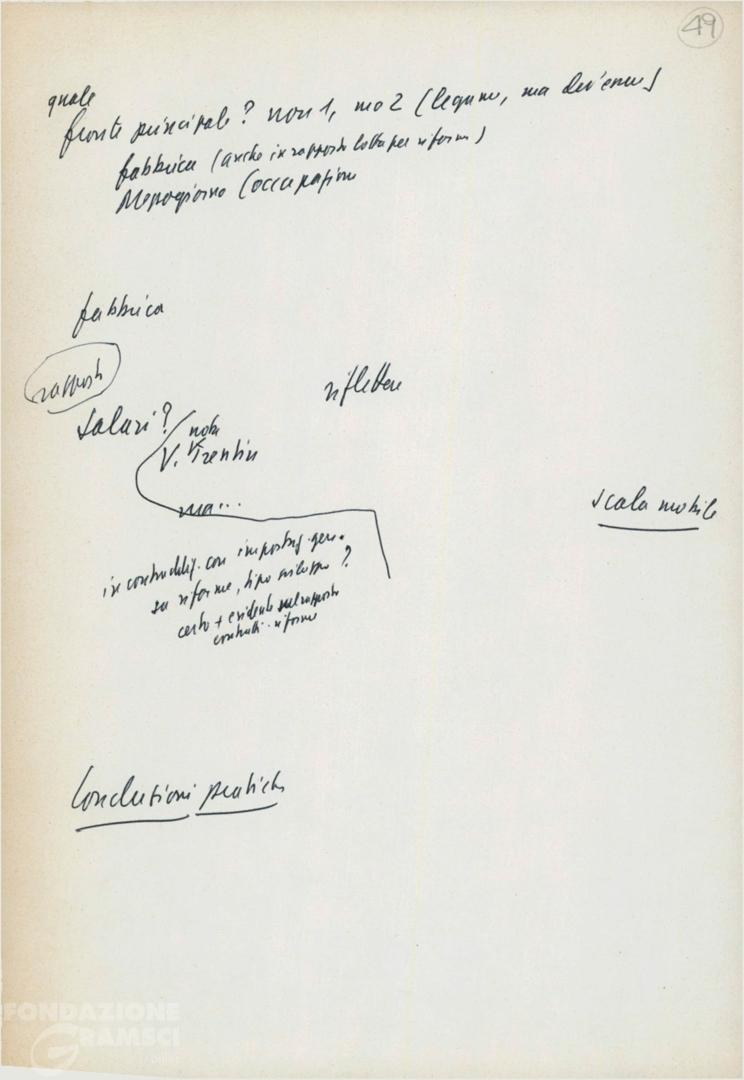 49
quale
fronte principale? non 1, ma 2 (legame, ma
fabbrica (anche in rapporto lotta per riforme)
Mezzogiorno (occupazione
fabbrica
rapporti
riflettere
salari? nota
V. Trentin
scala mobile
ma...
in contraddiz. con impostaz. gen.
su riforme, tipo sviluppo?
certo + evidente sul rapporto
contratti-riforme
Conclusioni pratiche
FONDAZIONE
GRAMSCI